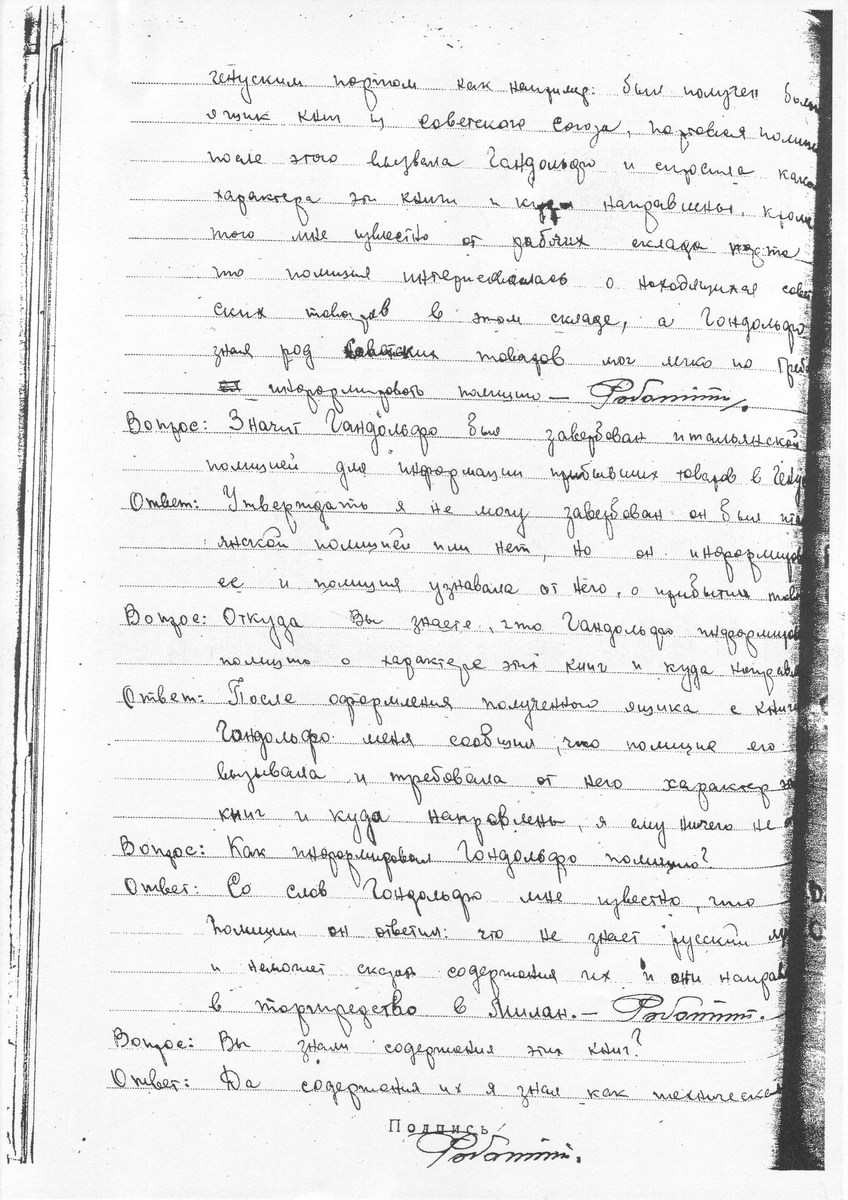 генуским портом как например: был получен
ящик книг из Советского Союза, портовая
после этого вызвала Гандольфо и спросила
характера эти книги и направлены, кроме
того мне известно от рабочих склада
что полиция интерисовалась о находящихся
ских товаров в этом складе, а Гандольфо
зная род Советских товаров мог легко по
информировать полицию — Роботти.
Вопрос: Значит Гандольфо был завербован итальянской
полицией для информации прибывших товаров в
Ответ: Утверждать я не могу завербован он был
янской полицией или нет, но он
ее и полиция узнавала от него, о прибытии
Вопрос: Откуда Вы знаете, что Гандольфо
полицию о характере этих книг и куда
Ответ: После оформления полученного ящика с
Гандольфо меня сообщил, что полицие его
вызывала и требовала от него характер
книг и куда направлены, я ему ничего не
Вопрос: Как информировал Гондольфо полицию?
Ответ: Со слов Гондольфо мне известно, что
полиции он ответил: что не знает русский
и неможет сказать содержания их и они
в торгпредство в Милан. — Роботти.
Вопрос: Вы знали содержания этих книг?
Ответ: Да содержания их я знал как
Подпись
Роботти.